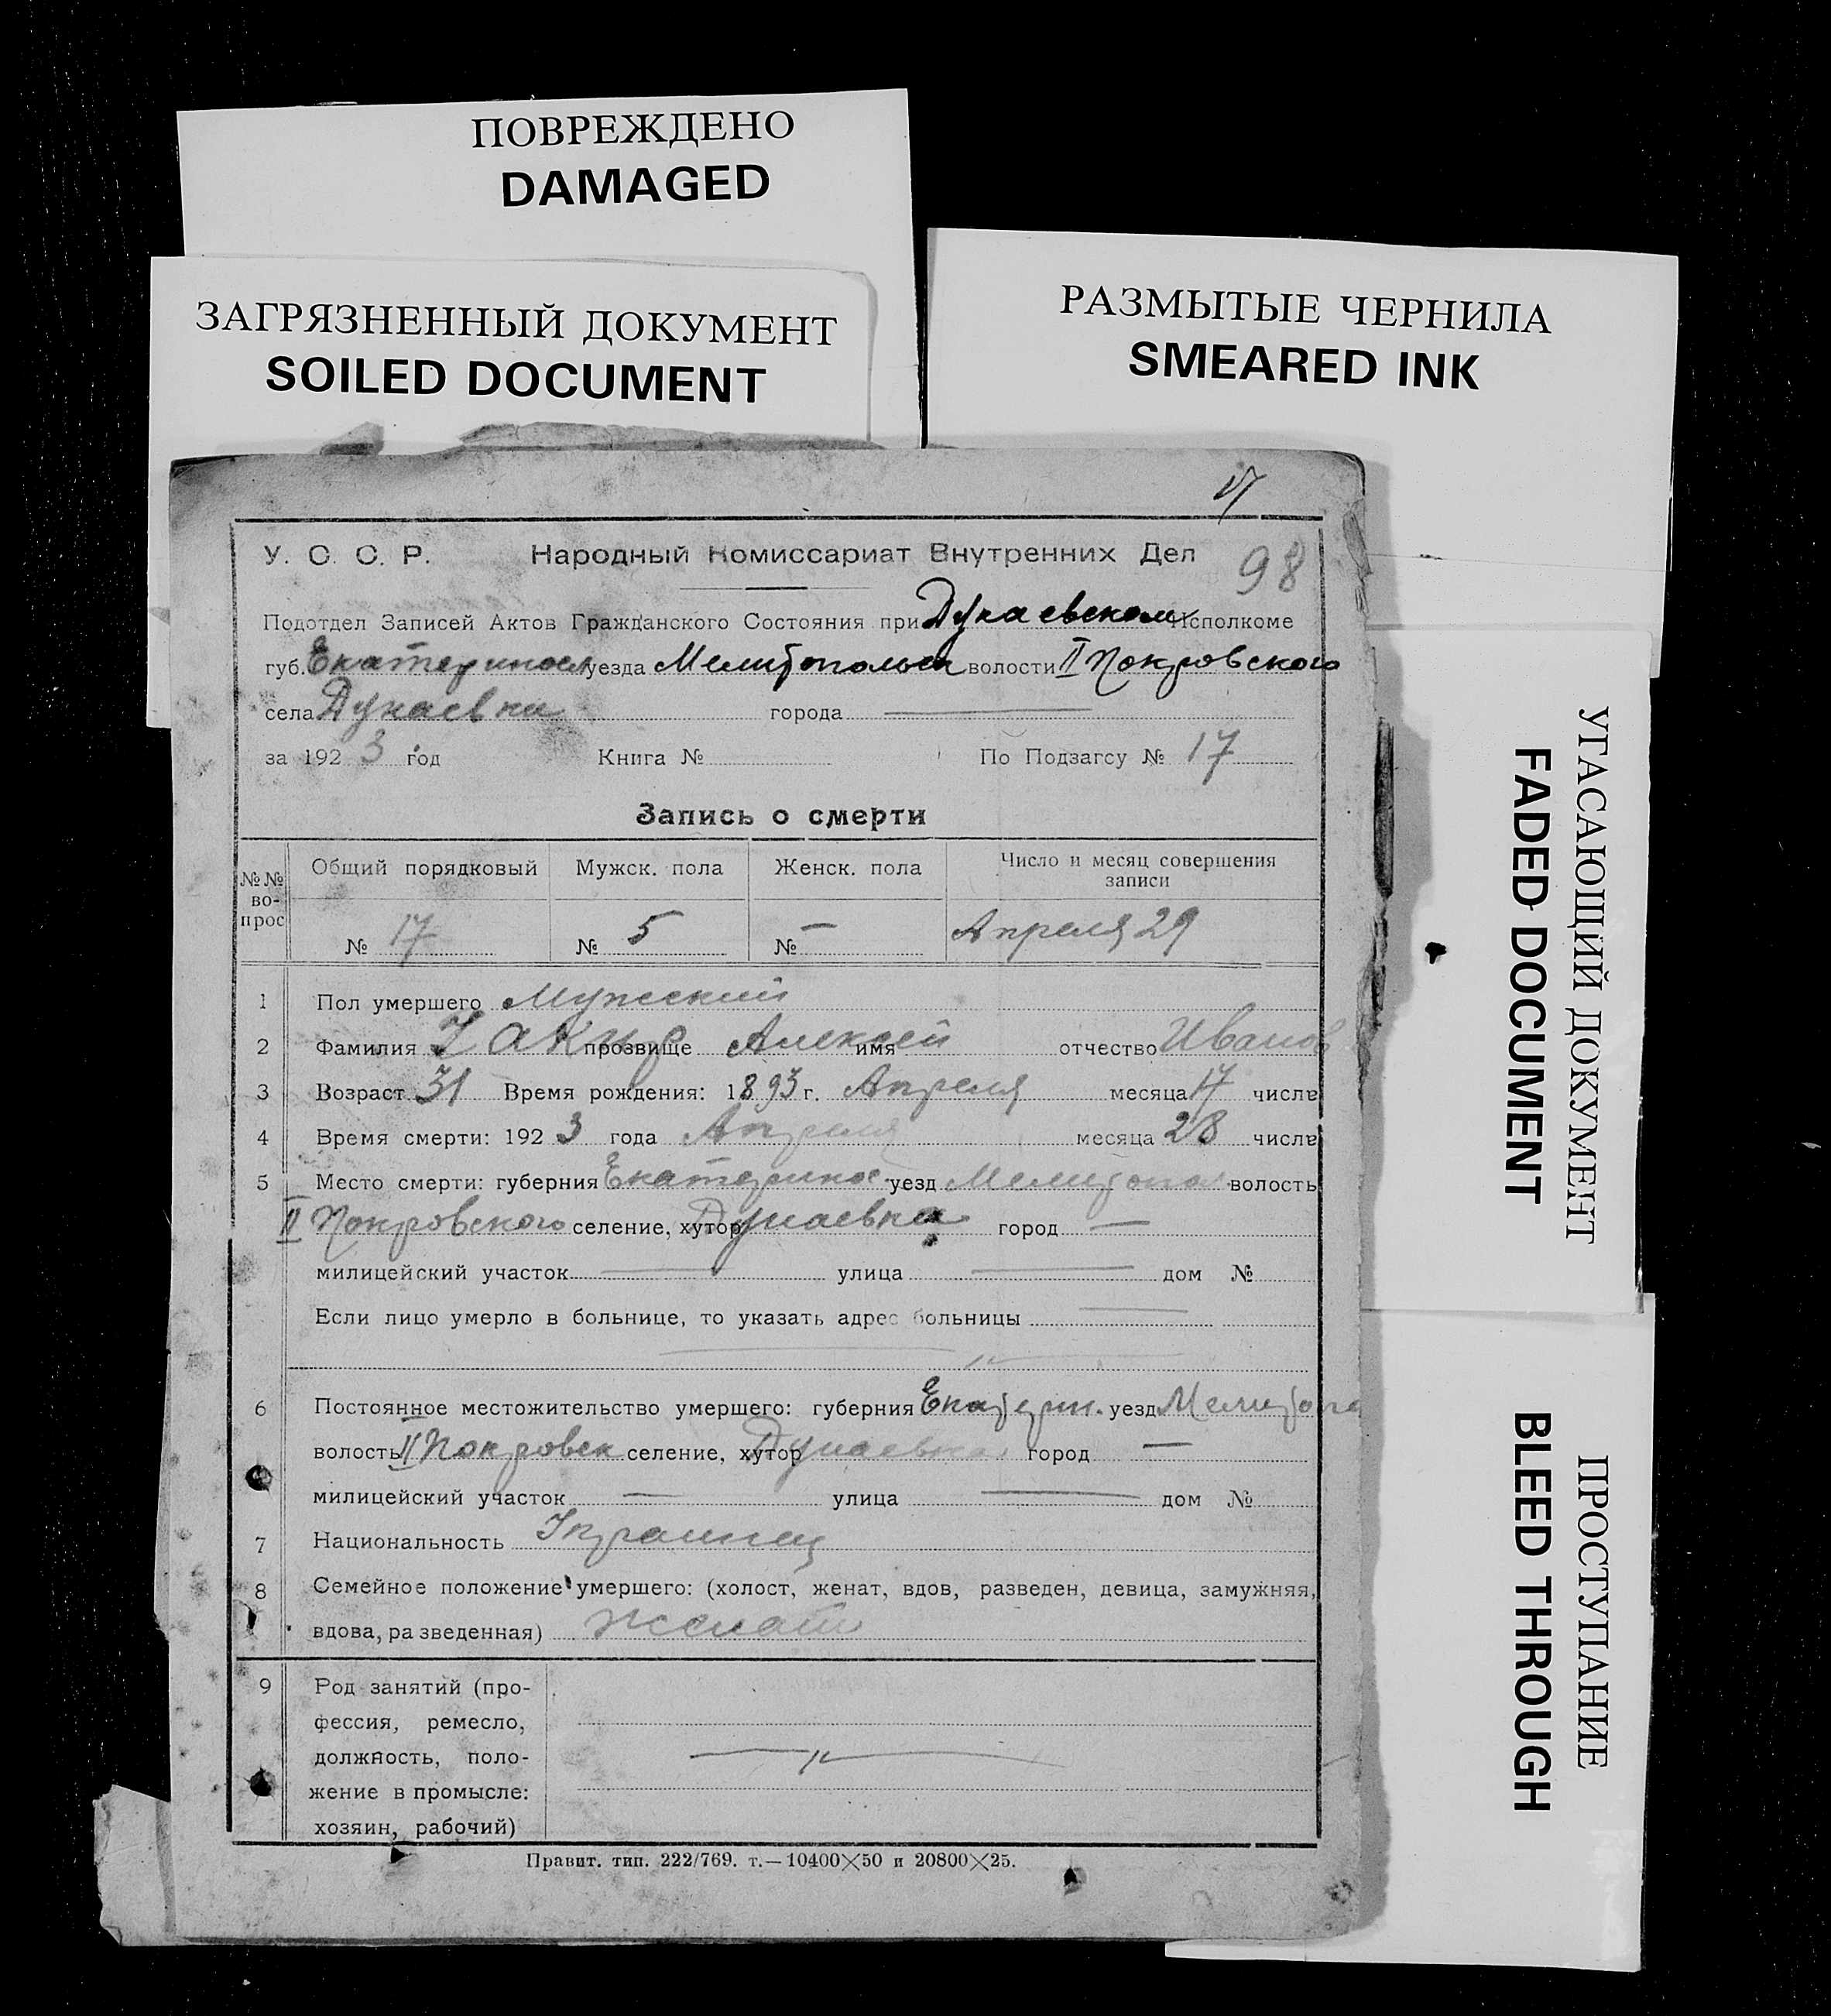 ПОВРЕЖДЕНО
DAMAGED
ЗАГРЯЗНЕННЫЙ ДОКУМЕНТ
SOILED DOCUMENT
РАЗМЫТЫЕ ЧЕРНИЛА
SMEARED INK
17
У. С. С. Р. Народный Комиссариат Внутренних Дел 98
Подотдел Записей Актов Гражданского Состояния при Дунаевском Исполкоме
губ. Екатеринос уезда Мелитопольск волости II Покровского
села Дунаевки города —
за 1923 год Книга № По Подзагсу № 17
Запись о смерти
№№ вопрос Общий порядковый Мужск. пола Женск. пола Число и месяц совершения записи
№ 17 № 5 № — Апреля 29
1 Пол умершего Мужеский
2 Фамилия прозвище Алексей имя отчество Иванов
3 Возраст 31 Время рождения: 1893 г. Апреля месяца 17 числа
4 Время смерти: 1923 года Апреля месяца 28 числа
5 Место смерти: губерния Екатеринос уезд Мелитопол волость
II Покровского селение, хутор Дунаевка город —
милицейский участок — улица — дом №
Если лицо умерло в больнице, то указать адрес больницы —
— " —
6 Постоянное местожительство умершего: губерния Екатерин. уезд Мелитопо
волость II Покровск селение, хутор Дунаевка город —
милицейский участок — улица — дом №
7 Национальность Украинец
8 Семейное положение умершего: (холост, женат, вдов, разведен, девица, замужняя,
вдова, разведенная) женат
9 Род занятий (про-
фессия, ремесло,
должность, поло- — " —
жение в промысле:
хозяин, рабочий)
Правит. тип. 222/769. т.—10400×50 и 20800×25.
УГАСАЮЩИЙ ДОКУМЕНТ
FADED DOCUMENT
ПРОСТУПАНИЕ
BLEED THROUGH